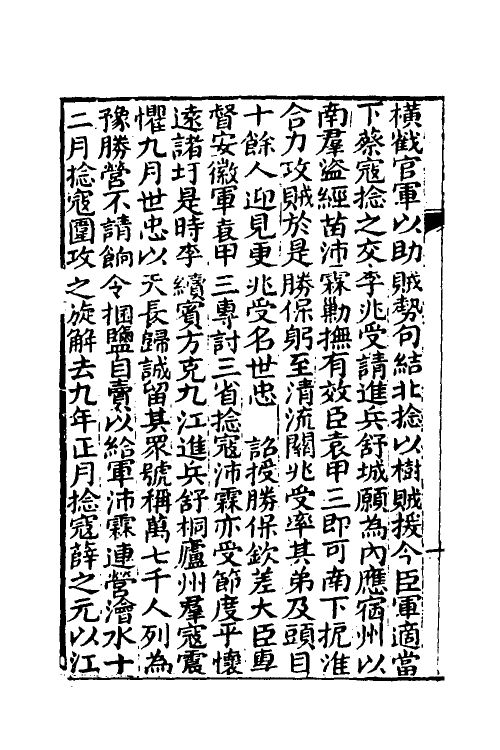 橫截官軍以助賊勢句結北捻以樹賊援今臣軍適當
下蔡寇捻之交李兆受請進兵舒城願為內應宿州以
南羣盜經苗沛霖勦撫有效臣袁甲三即可南下扼淮
合力攻賊於是勝保躬至清流關兆受率其弟及頭目
十餘人迎見更兆受名世忠　詔授勝保欽差大臣專
督安徽軍袁甲三專討三省捻寇沛霖亦受節度平懷
遠諸圩是時李續賓方克九江進兵舒桐廬州羣寇震
懼九月世忠以天長歸誠留其眾號稱萬七千人列為
豫勝營不請餉令捆鹽自賣以給軍沛霖連營澮水十
二月捻寇圍攻之旋解去九年正月捻寇薛之元以江